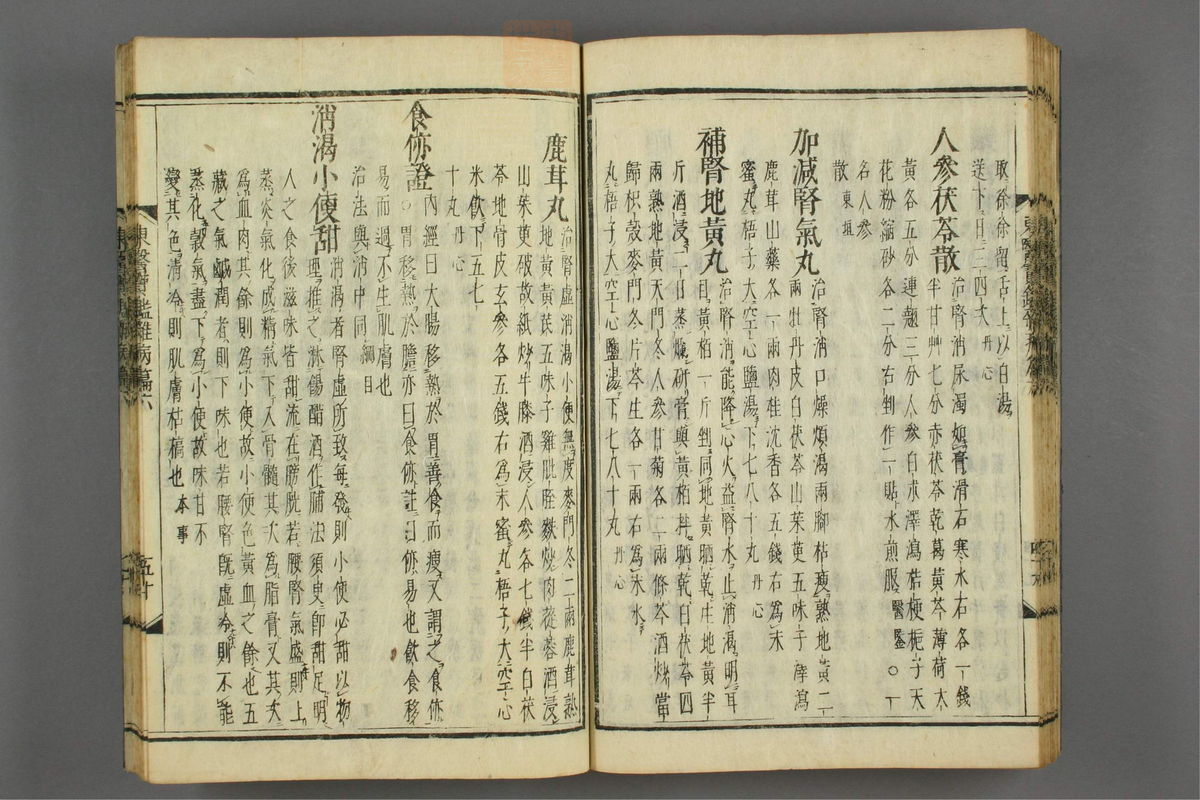 取徐徐留舌上以白湯
送下日三四次丹心
人參茯苓散治腎消尿濁如膏滑石寒水石各一錢
半甘艸七分赤茯苓乾葛黃芩薄荷大
黃各五分連翹三分人參白朮澤瀉桔梗梔子天
花粉縮砂各二分右剉作一貼水煎服醫鑑○一
名人參
散東垣
加減腎氣丸治腎消口燥煩渴兩腳枯瘦熟地黃二
兩牡丹皮白茯苓山茱萸五味子澤瀉
鹿茸山藥各一兩肉桂沈香各五錢右爲末
蜜丸梧子大空心鹽湯下七八十丸丹心
補腎地黃丸治腎消能降心火益腎水止消渴明耳
目黃栢一斤剉同地黃晒乾生地黃半
斤酒浸二日蒸爛硏膏與黃栢拌晒乾白茯苓四
兩熟地黃天門冬人參甘菊各二兩條芩酒炒當
歸枳殼麥門冬片芩生各一兩右爲末水
丸梧子大空心鹽湯下七八十丸丹心
鹿茸丸治腎虛消渴小便無度麥門冬二兩鹿茸熟
地黃黃芪五味子雞肶胵麩炒肉蓯蓉酒浸
山茱萸破故紙炒牛膝酒浸人參各七錢半白茯
苓地骨皮玄參各五錢右爲末蜜丸梧子大空心
米飮下五七
十丸丹心
食㑊證內經曰大腸移熱於胃善食而瘦又謂之食㑊
○胃移熱於膽亦曰食㑊註曰㑊易也飮食移
易而過不生肌膚也
治法與消中同綱目
消渴小便甜消渴者腎虛所致每發則小便必甜以物
理推之淋餳醋酒作脯法須臾卽甜足明
人之食後滋味皆甜流在膀胱若腰腎氣盛則上
蒸炎氣化成精氣下入骨髓其次爲脂膏又其次
爲血肉其餘則爲小便故小便色黃血之餘也五
藏之氣鹹潤者則下味也若腰腎旣虛冷則不能
蒸化穀氣盡下爲小便故味甘不
變其色淸冷則肌膚枯槁也本事
東醫寶鑑雜病篇六
五十